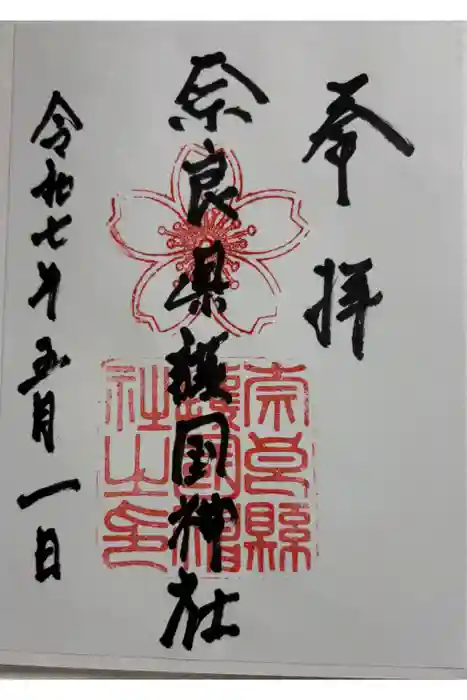 奉拝
奈良県護国神社
令和七年五月一日
奈良縣
護國神
社之印